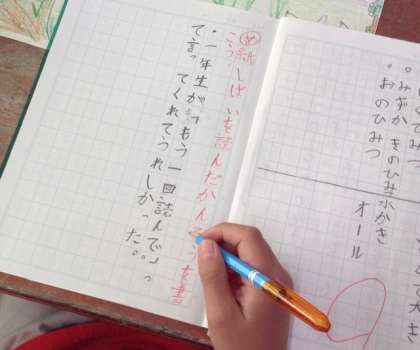 て大き
オール
水かき
みずかきのひみ
おのひみつ
め 紙しばいを読んだかんそうを書
こう。
・一年生が「もう一回読んで」っ
て言ってくれてうれしかった。